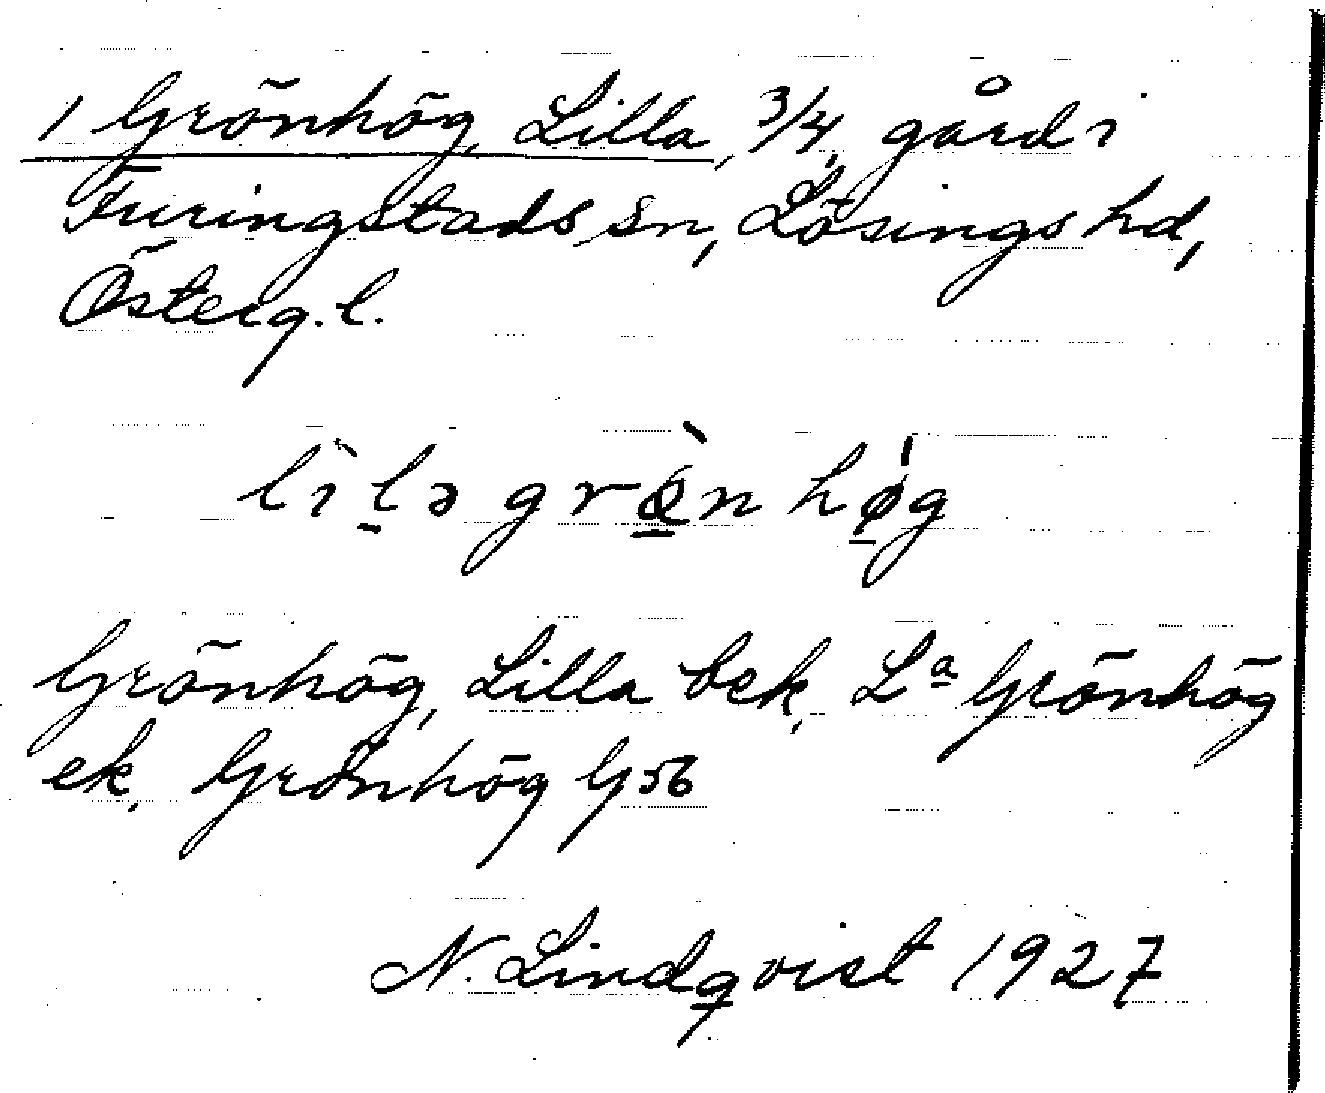 1 Grönhög, Lilla, 3/4, gård i
Furingstads sn, Lösings hd,
Österg. l.
lìlə grö̀nhø̍g
Grönhög, Lilla bek, Lª Grönhög
ek, Grönhög G56
N. Lindqvist 1927